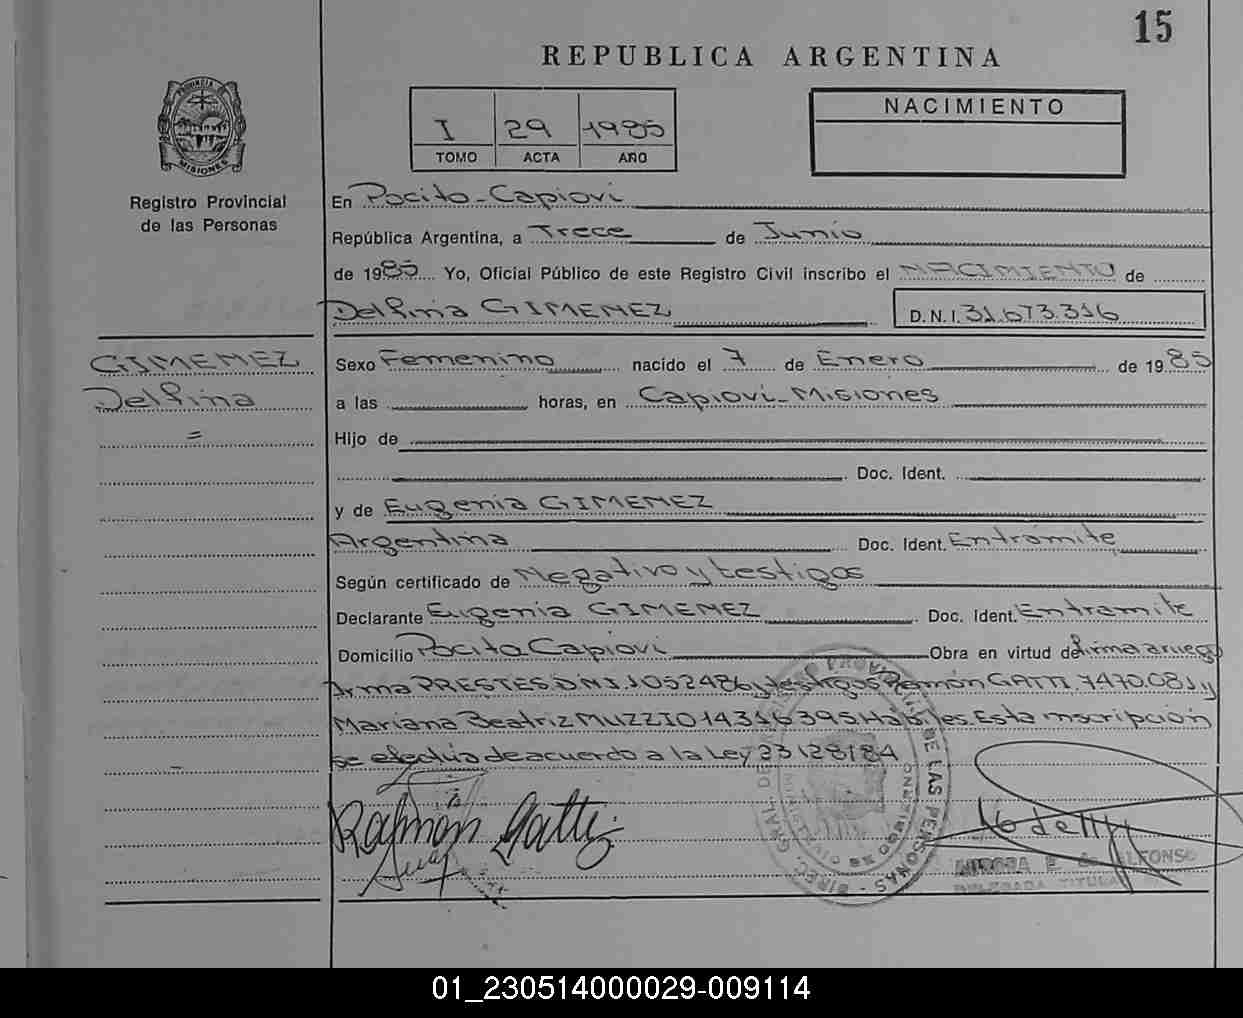 15
REPUBLICA ARGENTINA
PROVINCIA DE MISIONES
Registro Provincial
de las Personas
I 29 1985
TOMO ACTA AÑO
NACIMIENTO
En Pocito-Capiovi
República Argentina, a Trece de Junio
de 1985 Yo, Oficial Público de este Registro Civil inscribo el NACIMIENTO de
Delfina GIMENEZ D.N.I. 31.673.316
GIMENEZ
Delfina
=
Sexo Femenino nacido el 7 de Enero de 1985
a las horas, en Capiovi-Misiones
Hijo de
Doc. Ident.
y de Eugenia GIMENEZ
Argentina Doc. Ident. Entramite
Según certificado de Negativo y testigos
Declarante Eugenia GIMENEZ Doc. Ident. Entramite
Domicilio Pocito Capiovi Obra en virtud de firma aruego
Irma PRESTES.D.N.I. y testigos Ramón GATTI.7470.081 y
Mariana Beatriz MUZZIO 14316395 Habiles. Esta inscripción
se efectúa de acuerdo a la Ley 23128/84
Ramón Gatti
DE LAS PERSONAS
E. de ALFONSO
DELEGADA TITULAR
01_230514000029-009114